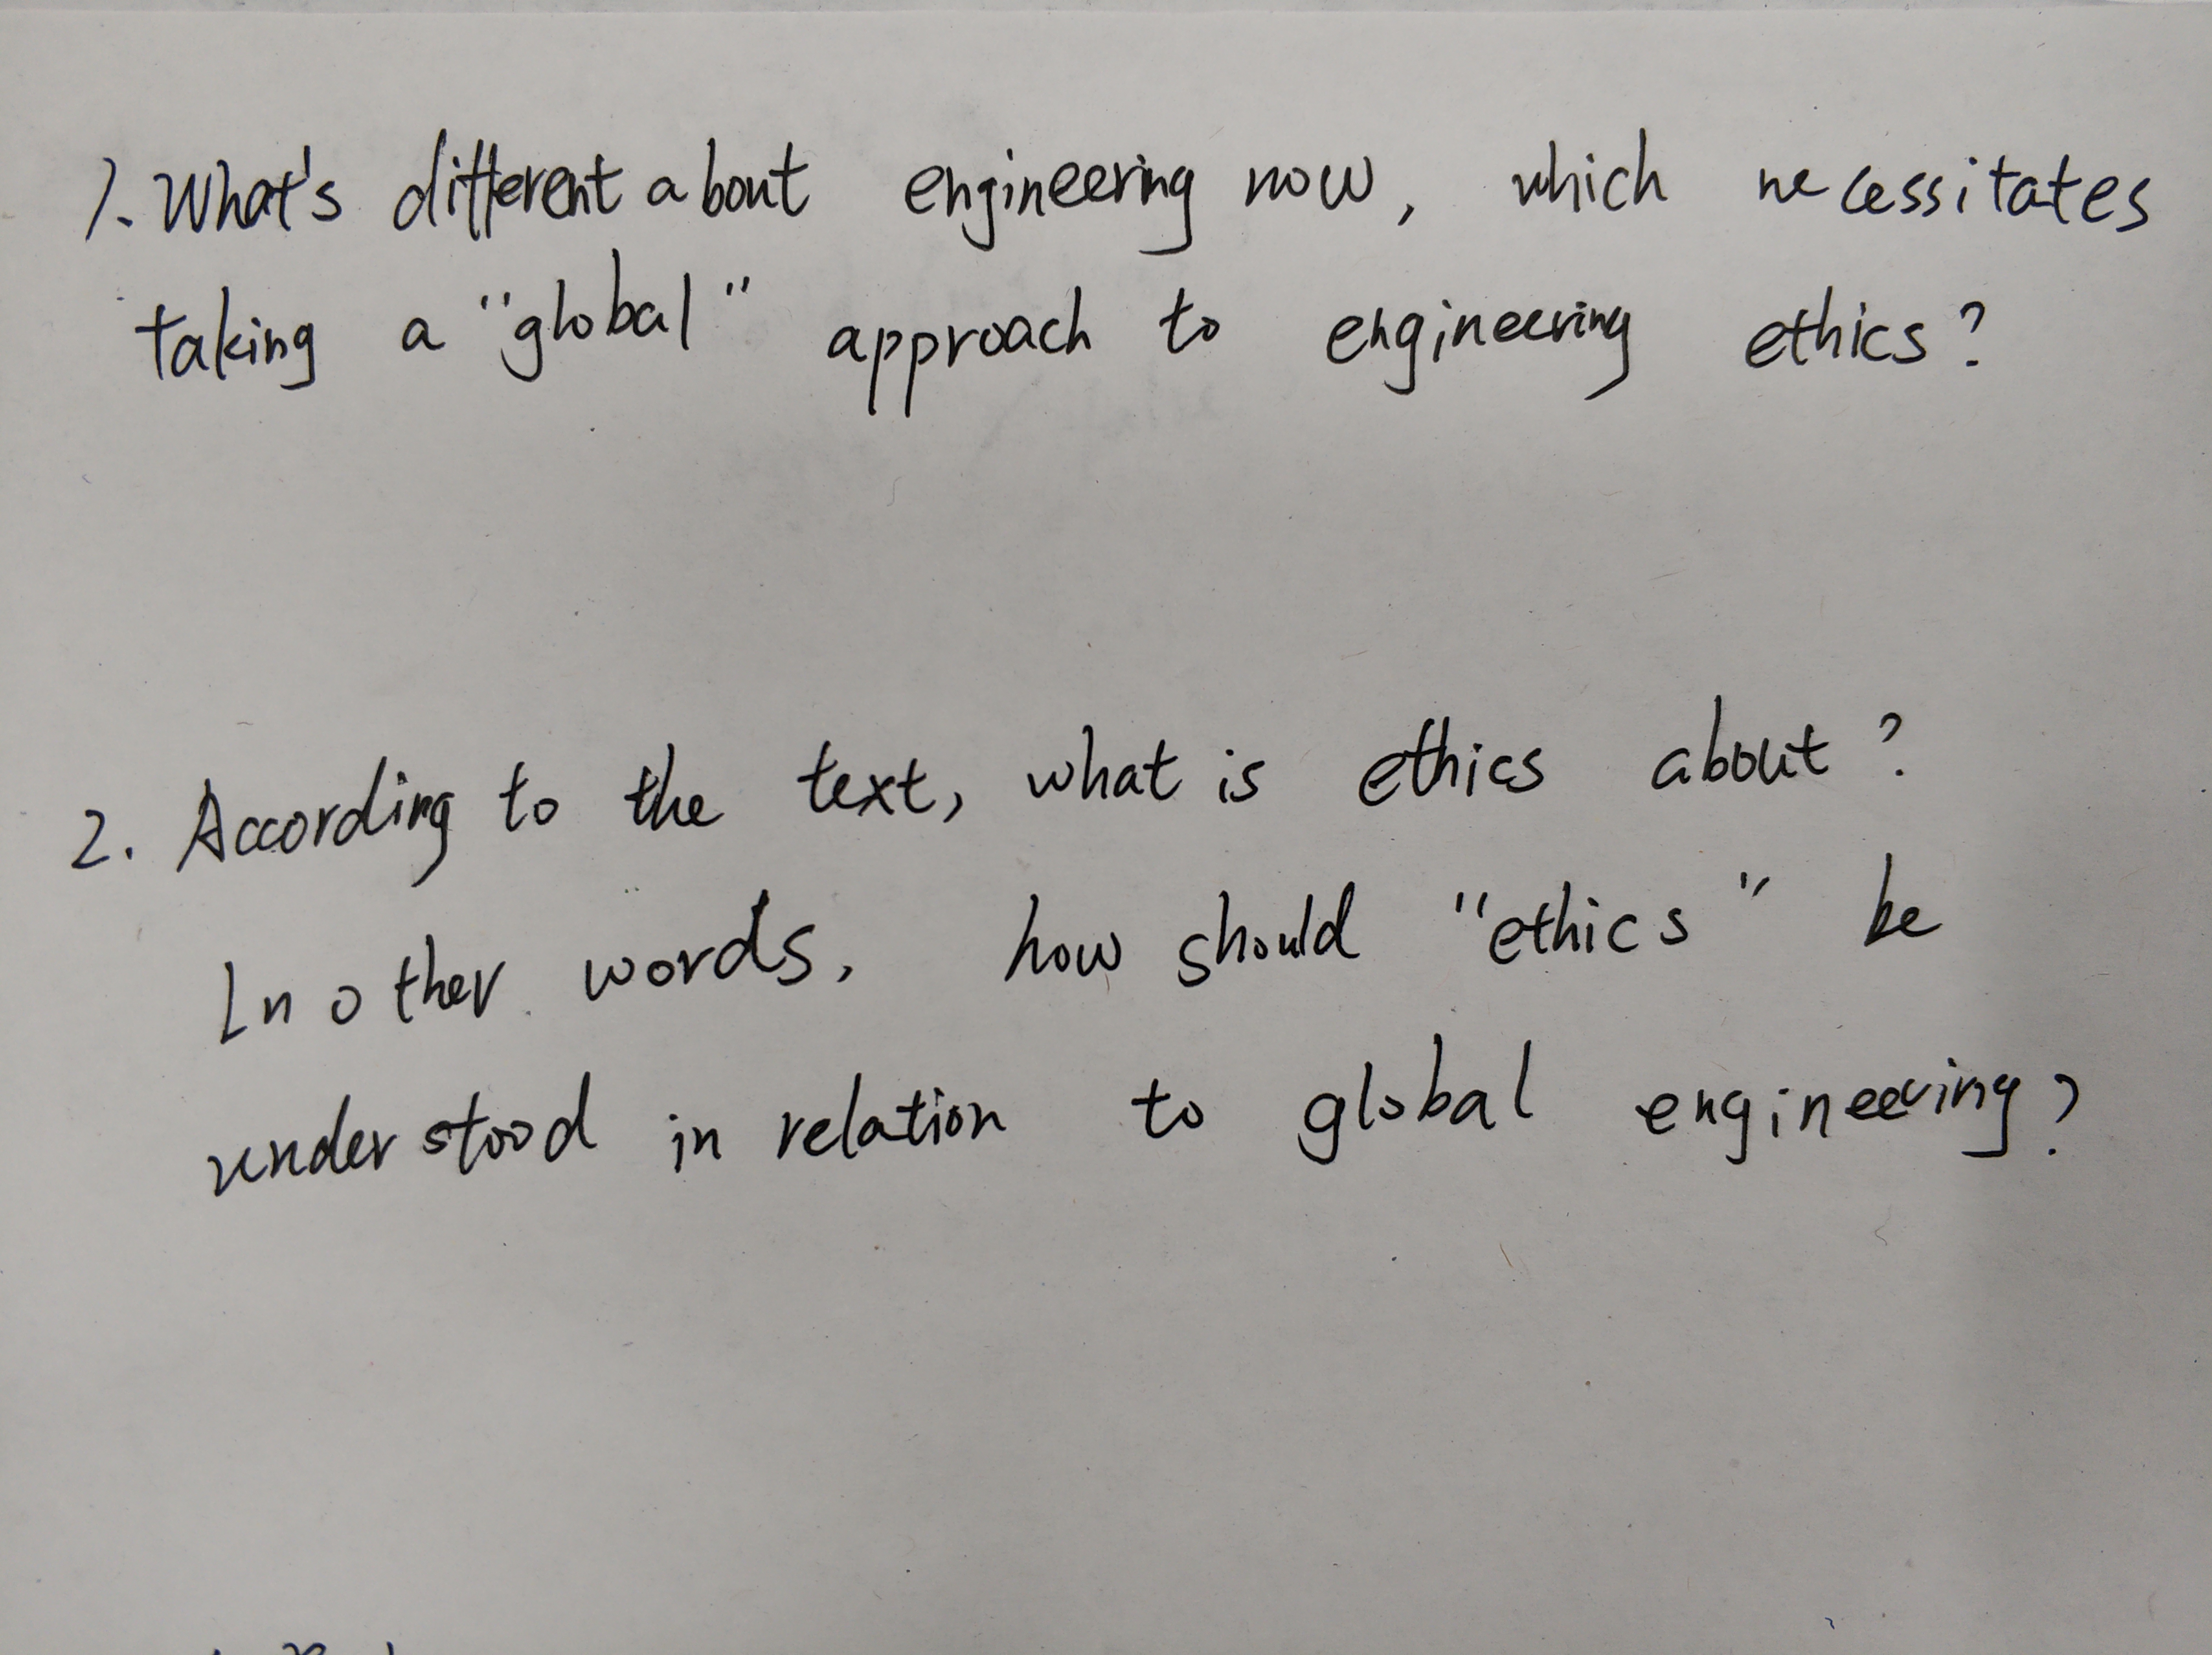 1. What's different about engineering now, which necessitates
taking a "global" approach to engineering ethics?
2. According to the text, what is ethics about?
In other words, how should "ethics" be
understood in relation to global engineering?